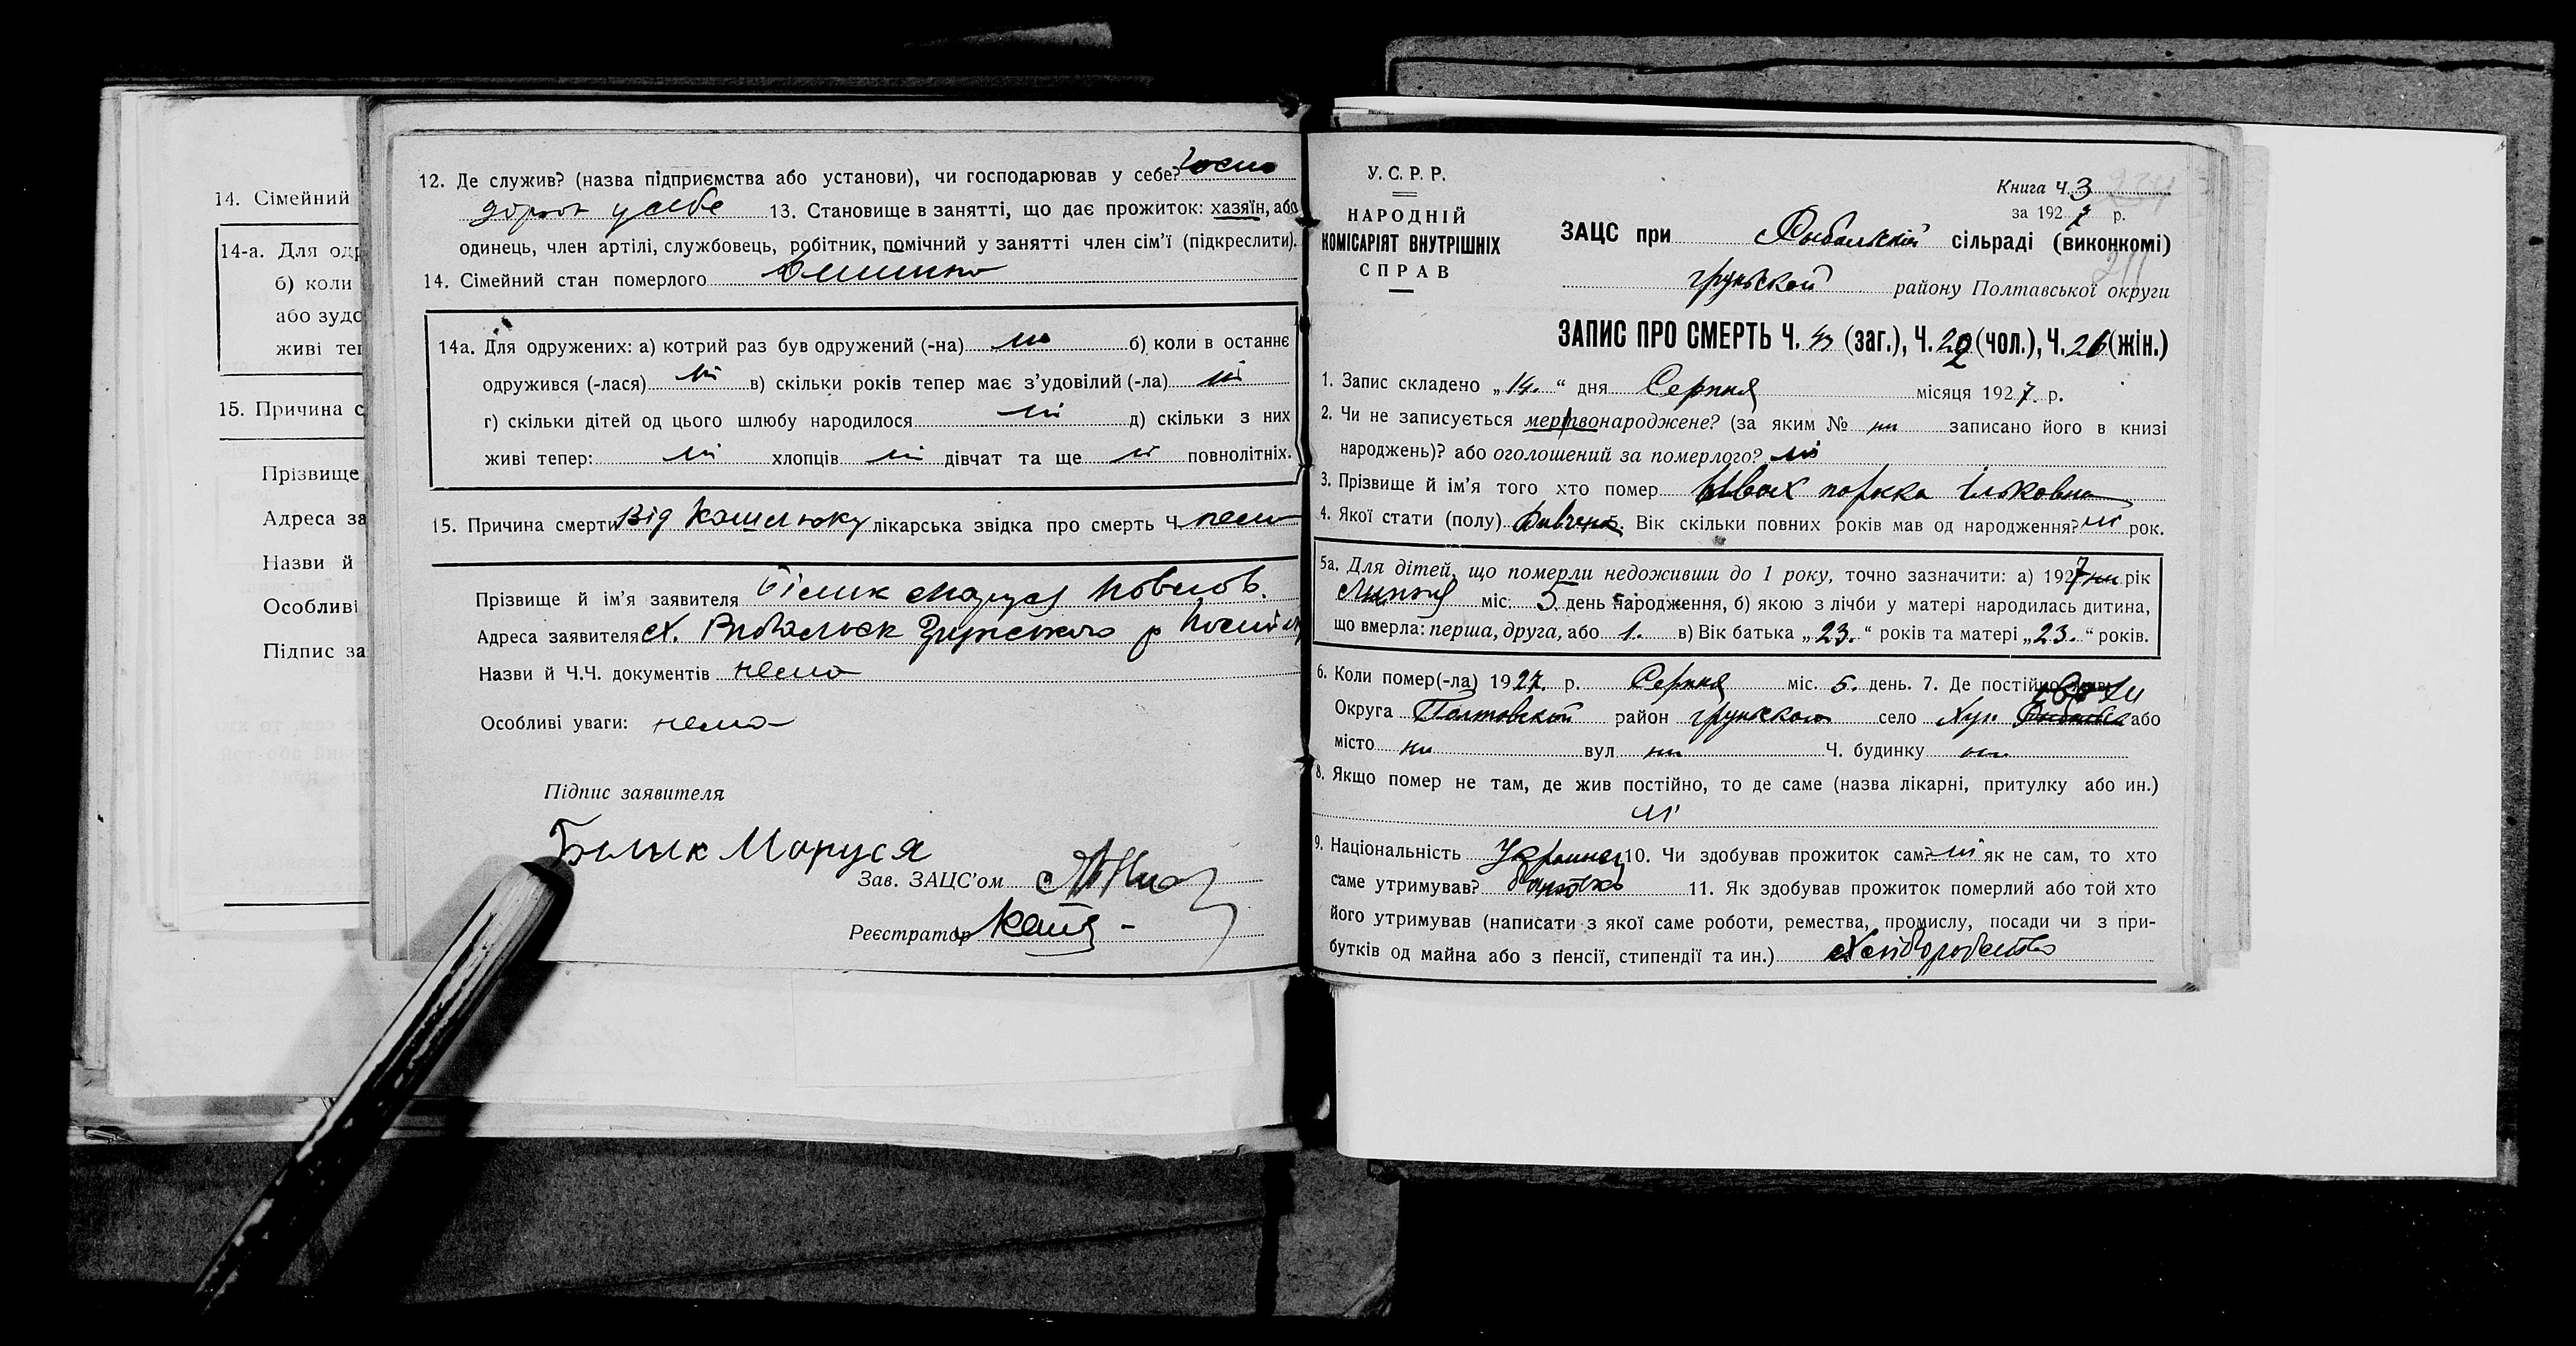 14. Сімейний
14-а. Для одр
б) коли
або зудо
живі теп
15. Причина с
Прізвище
Адреса за
Назви й
Особливі
Підпис за
12. Де служив? (назва підприємства або установи), чи господарював у себе?
у себе 13. Становище в занятті, що дає прожиток: хазяїн, або
одинець, член артілі, службовець, робітник, помічний у занятті член сім'ї (підкреслити).
14. Сімейний стан померлого
14а. Для одружених: а) котрий раз був одружений (-на) ні б) коли в останнє
одружився (-лася) ні в) скільки років тепер має з'удовілий (-ла) ні
г) скільки дітей од цього шлюбу народилося ні д) скільки з них
живі тепер: ні хлопців ні дівчат та ще ні повнолітніх.
15. Причина смерти Від Кашлюку лікарська звідка про смерть Ч. нема
Прізвище й ім'я заявителя Білик Маруся
Адреса заявителя х.
Назви й Ч.Ч. документів нема
Особливі уваги: нема
Підпис заявителя
Билик Маруся
Зав. ЗАЦС'ом
Реєстратор
У. С. Р. Р.
НАРОДНІЙ
КОМІСАРІЯТ ВНУТРІШНІХ
СПРАВ
Книга ч. 3
за 1927 р.
ЗАЦС при Рыбальской сільраді (виконкомі)
грунской району Полтавської округи
211
ЗАПИС ПРО СМЕРТЬ Ч. (заг.), Ч. 22 (чол.), Ч. 26 (жін.)
1. Запис складено „14." дня Серпня місяця 1927. р.
2. Чи не записується мертвонароджене? (за яким № ни записано його в книзі
народжень)? або оголошений за померлого? ні
3. Прізвище й ім'я того хто помер Ивах
4. Якої стати (полу) 5. Вік скільки повних років мав од народження? ні рок.
5а. Для дітей, що померли недоживши до 1 року, точно зазначити: а) 1927 рік
Липня міс. 5. день народження, б) якою з лічби у матері народилась дитина,
що вмерла: перша, друга, або 1. в) Вік батька „23." років та матері „23." років.
6. Коли помер(-ла) 1927. р. Серпня міс. 5. день. 7. Де постійно жив:
Округа Полтовской район грунского село Хут. або
місто ни вул ни Ч. будинку ни
8. Якщо помер не там, де жив постійно, то де саме (назва лікарні, притулку або ин.)
ні
9. Національність Украинец 10. Чи здобував прожиток сам? ні як не сам, то хто
саме утримував? батько 11. Як здобував прожиток померлий або той хто
його утримував (написати з якої саме роботи, ремества, промислу, посади чи з при-
бутків од майна або з пенсії, стипендії та ин.) Хліборобство